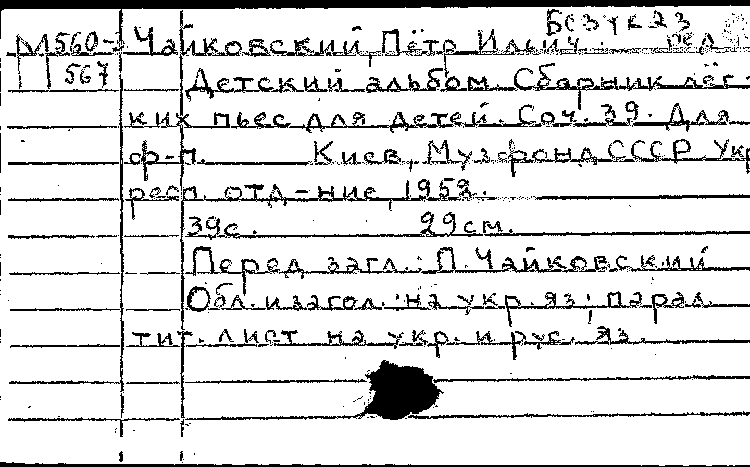 БеЗУК23
М560- Чайковский, Пётр Ильич. пед
567 Детский альбом. Сборник лёг-
ких пьес для детей. Соч. 39. Для
ф-п. Киев, Музфонд СССР. Укр
респ. отд-ние, 1952.
39с. 29см.
Перед загл.: П. Чайковский
Обл. и загол.: на укр. яз; парал.
тит. лист на укр. и рус. яз.